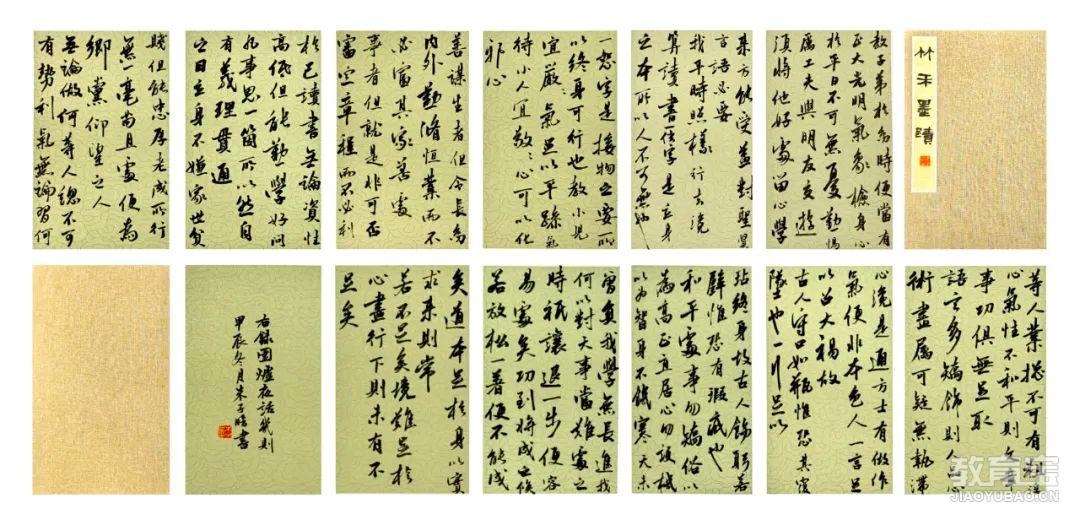 墨蹟
教子弟於幼時便當有
正大光明氣象檢身心
於平日不可無憂勤惕
厲工夫與朋友交遊
須將他好處留心學
來方能受益對聖賢
言語必要
我平時照樣行去
算讀書信字是立身
之本所以人不可無也
一恕字是接物之要所
以終身可行也教小兒
宜嚴嚴氣足以平躁氣
待小人宜敬敬心可以化
邪心
善謀生者但令長幼
內外勤脩恒業而不
必富其家善處
事者但就是非可否
審定章程而不必利
於己讀書無論資性
高低但能勤學好問
凡事思一箇所以然自
有義理貫通
之日立身不嫌家世貧
賤但能忠厚老成所行
無一毫苟且處便為
鄉黨仰望之人
無論做何等人總不可
有勢利氣無論習何
等人業總不可有粗浮
心氣性不和平則文章
事功俱無足取
語言多矯飾則人品心
術盡屬可疑無執滯
心總是通方士有做作
氣便非本色人一言足
以召大禍故
古人守口如瓶惟恐其覆
墜也一行足以
玷終身故古人飭躬若
璧惟恐有瑕疵也
和平處事勿矯俗以
為高正直居心勿設機
以為智身不饑寒天未
曾負我學無長進我
何以對天事當難處之
時祇讓退一步便容
易處矣功到將成之候
若放松一著便不能成
矣道本足於身以實
求來則常
若不足矣境難足於
心盡行下則未有不
足矣
右錄圍爐夜話幾則
甲辰冬月朱子書
教育宝
JIAOYUBAO.CN